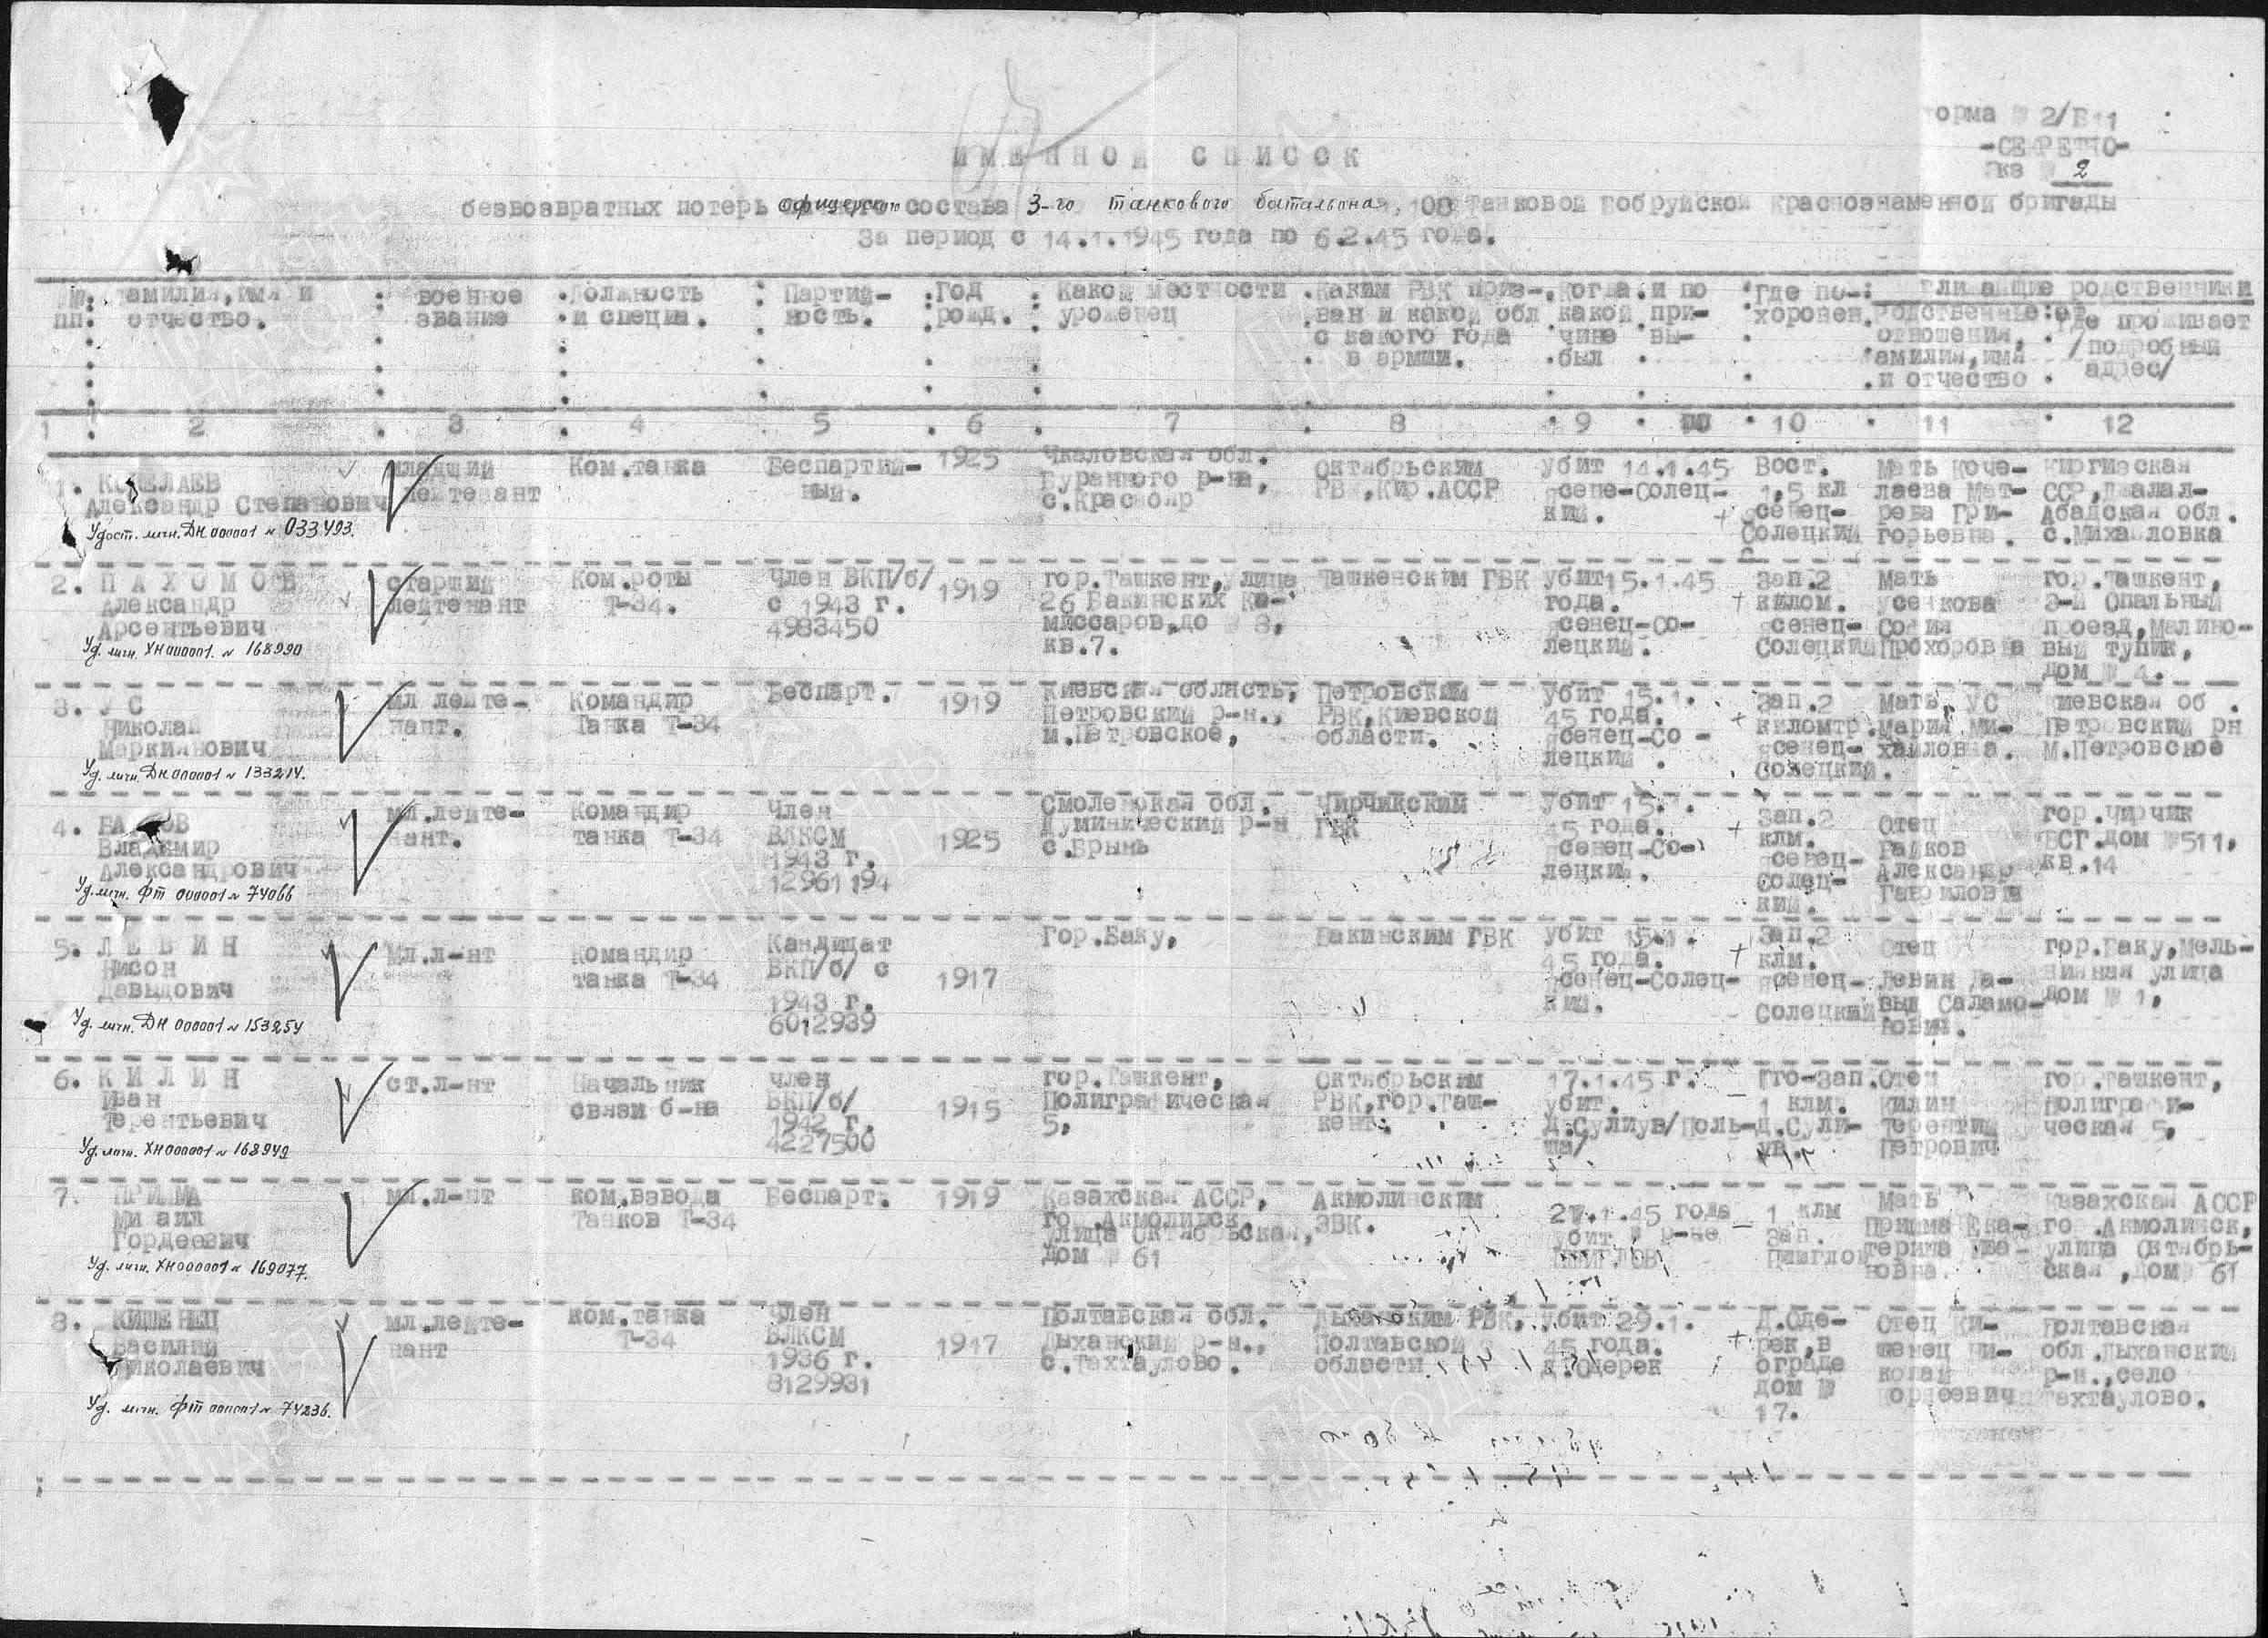 орма № 2/Б-1
-СЕКРЕТНО-
Экз № 2
ИМЕННОЙ СПИСОК
безвозвратных потерь офицерского состава 3-го танкового батальона, 108 танковой Бобруйской Краснознаменной бригады
За период с 14.1.1945 года по 6.2.45 года.
№№ пп.
Фамилия, имя и отчество.
военное звание
Должность и специа.
Партий-ность.
Год рожд.
Какой местности уроженец
Каким РВК приз-ван и какой обл с какого года в армии.
Когда и по какой при-чине вы-был
Где по-хоронен.
родственники
Родственные отношения, фамилия, имя и отчество
Где проживает /подробный адрес/
1 2 3 4 5 6 7 8 9 10 11 12
1. КОЧЕЛАЕВ
Александр Степанович
Удост. личн. ДН 000001 № 033493.
младший лейтенант
Ком.танка
Беспартий-ный.
1925
Чкаловская обл.
Буранного р-на,
с.Краснояр
Октябрьским
РВК, Кир.АССР
убит 14.1.45
ясене-Солец-
кий.
Вост.
1,5 кл
ясенец-
Солецкий
Мать Коче-
лаева Мат-
рена Гри-
горьевна.
Киргизская
ССР, Джалал-
Абадская обл.
с.Михайловка
2. ПАХОМОВ
Александр
Арсентьевич
Уд. личн. ХН 000001. № 168990
старший
лейтенант
Ком.роты
Т-34.
Член ВКП/б/
с 1943 г.
4983450
1919
гор.Ташкент, улица
26 Бакинских Ко-
миссаров, до № 8,
кв.7.
Ташкенским ГВК
убит 15.1.45
года.
ясенец-Со-
лецкий.
Зап.2
килом.
ясенец-
Солецкий
Мать
Усенкова
София
Прохоровна
гор.Ташкент,
3-й Опальный
проезд, Малино-
вый тупик,
дом № 4.
3. УС
Николай
Маркиянович
Уд. личн. ДН 000001 № 133214.
мл лейте-
нант.
Командир
Танка Т-34
Беспарт.
1919
Киевская область,
Петровский р-н.,
м.Петровское,
Петровским
РВК, Киевской
области.
Убит 15.1.
45 года.
ясенец-Со-
лецкий.
Зап.2
киломтр.
ясенец-
Солецкий.
Мать, УС
Мария Ми-
хайловна.
Киевская об.
Петровский рн
м.Петровское
4.
Владимир
Александрович
Уд. личн. ФТ 000001 № 74066
мл.лейте-
нант.
Командир
танка Т-34
Член
ВЛКСМ
1943 г.
12961194
1925
Смоленская обл.
Думиничеський р-н
с.Брынь
Чирчикским
ГВК
Убит 15.1.
45 года.
ясенец-Со-
лецкий.
Зап.2
клм.
ясенец-
Солец-
кий.
Отец
Александр
Гаврилович
гор.Чирчик
ВСГ.дом №511,
кв.14
5. ЛЕВИН
Нисон
Давыдович
Уд. личн. ДН 000001 № 153254
Мл.л-нт
Командир
танка Т-34
Кандидат
ВКП/б/ с
1943 г.
6012939
1917
Гор.Баку,
Бакинским ГВК
убит 15.1.
45 года.
ясенец-Солец-
кий.
Зап.2
клм.
ясенец-
Солецкий.
Отец
Левин Да-
выд Саламо-
нович.
гор.Баку, Мель-
ничная улица
дом № 1,
6. КИЛИН
Иван
Терентьевич
Уд. личн. ХН 000001 № 168949
ст.л-нт
Начальник
связи б-на
член
ВКП/б/
1942 г.
4227500
1915
гор.Ташкент,
Полиграфическая
5,
Октябрьским
РВК, гор.Таш-
кент.
17.1.45 г.
убит.
д.Сулиув/Поль-
ша/
Юго-зап.
1 клм.
д.Сули-
ув.
Отец
Килин
Терентий
Петрович
гор.Ташкент,
Полиграфи-
ческая 5,
7. ПРИЙМА
Михаил
Гордеевич
Уд. личн. ХН 000001 № 169077.
мл.л-нт
ком.взвода
Танков Т-34
Беспарт.
1919
Казахская АССР,
гор.Акмолинск,
улица Октябрьская,
дом № 61
Акмолинским
ЗВК.
27.1.45 года
убит в р-не
1 клм
Зап.
Мать
Прийма Ека-
терина Ива-
новна.
Казахская АССР
гор.Акмолинск,
улица Октябрь-
ская, дом 61
8. КИШЕНЕЦ
Василий
Николаевич
Уд. личн. ФТ 000001 № 74236.
мл.лейте-
нант
ком.танка
Т-34
Член
ВЛКСМ
1936 г.
8129931
1917
Полтавская обл.
Дыханский р-н.,
с.Тахтаулово.
Дыханским РВК,
Полтавской
области
убит 29.1.
45 года.
д.Одерек
Д.Оде-
рек, в
ограде
дом №
17.
Отец Ки-
шенец Ни-
колай
Гордеевич
Полтавская
обл.Дыханский
р-н., село
Тахтаулово.